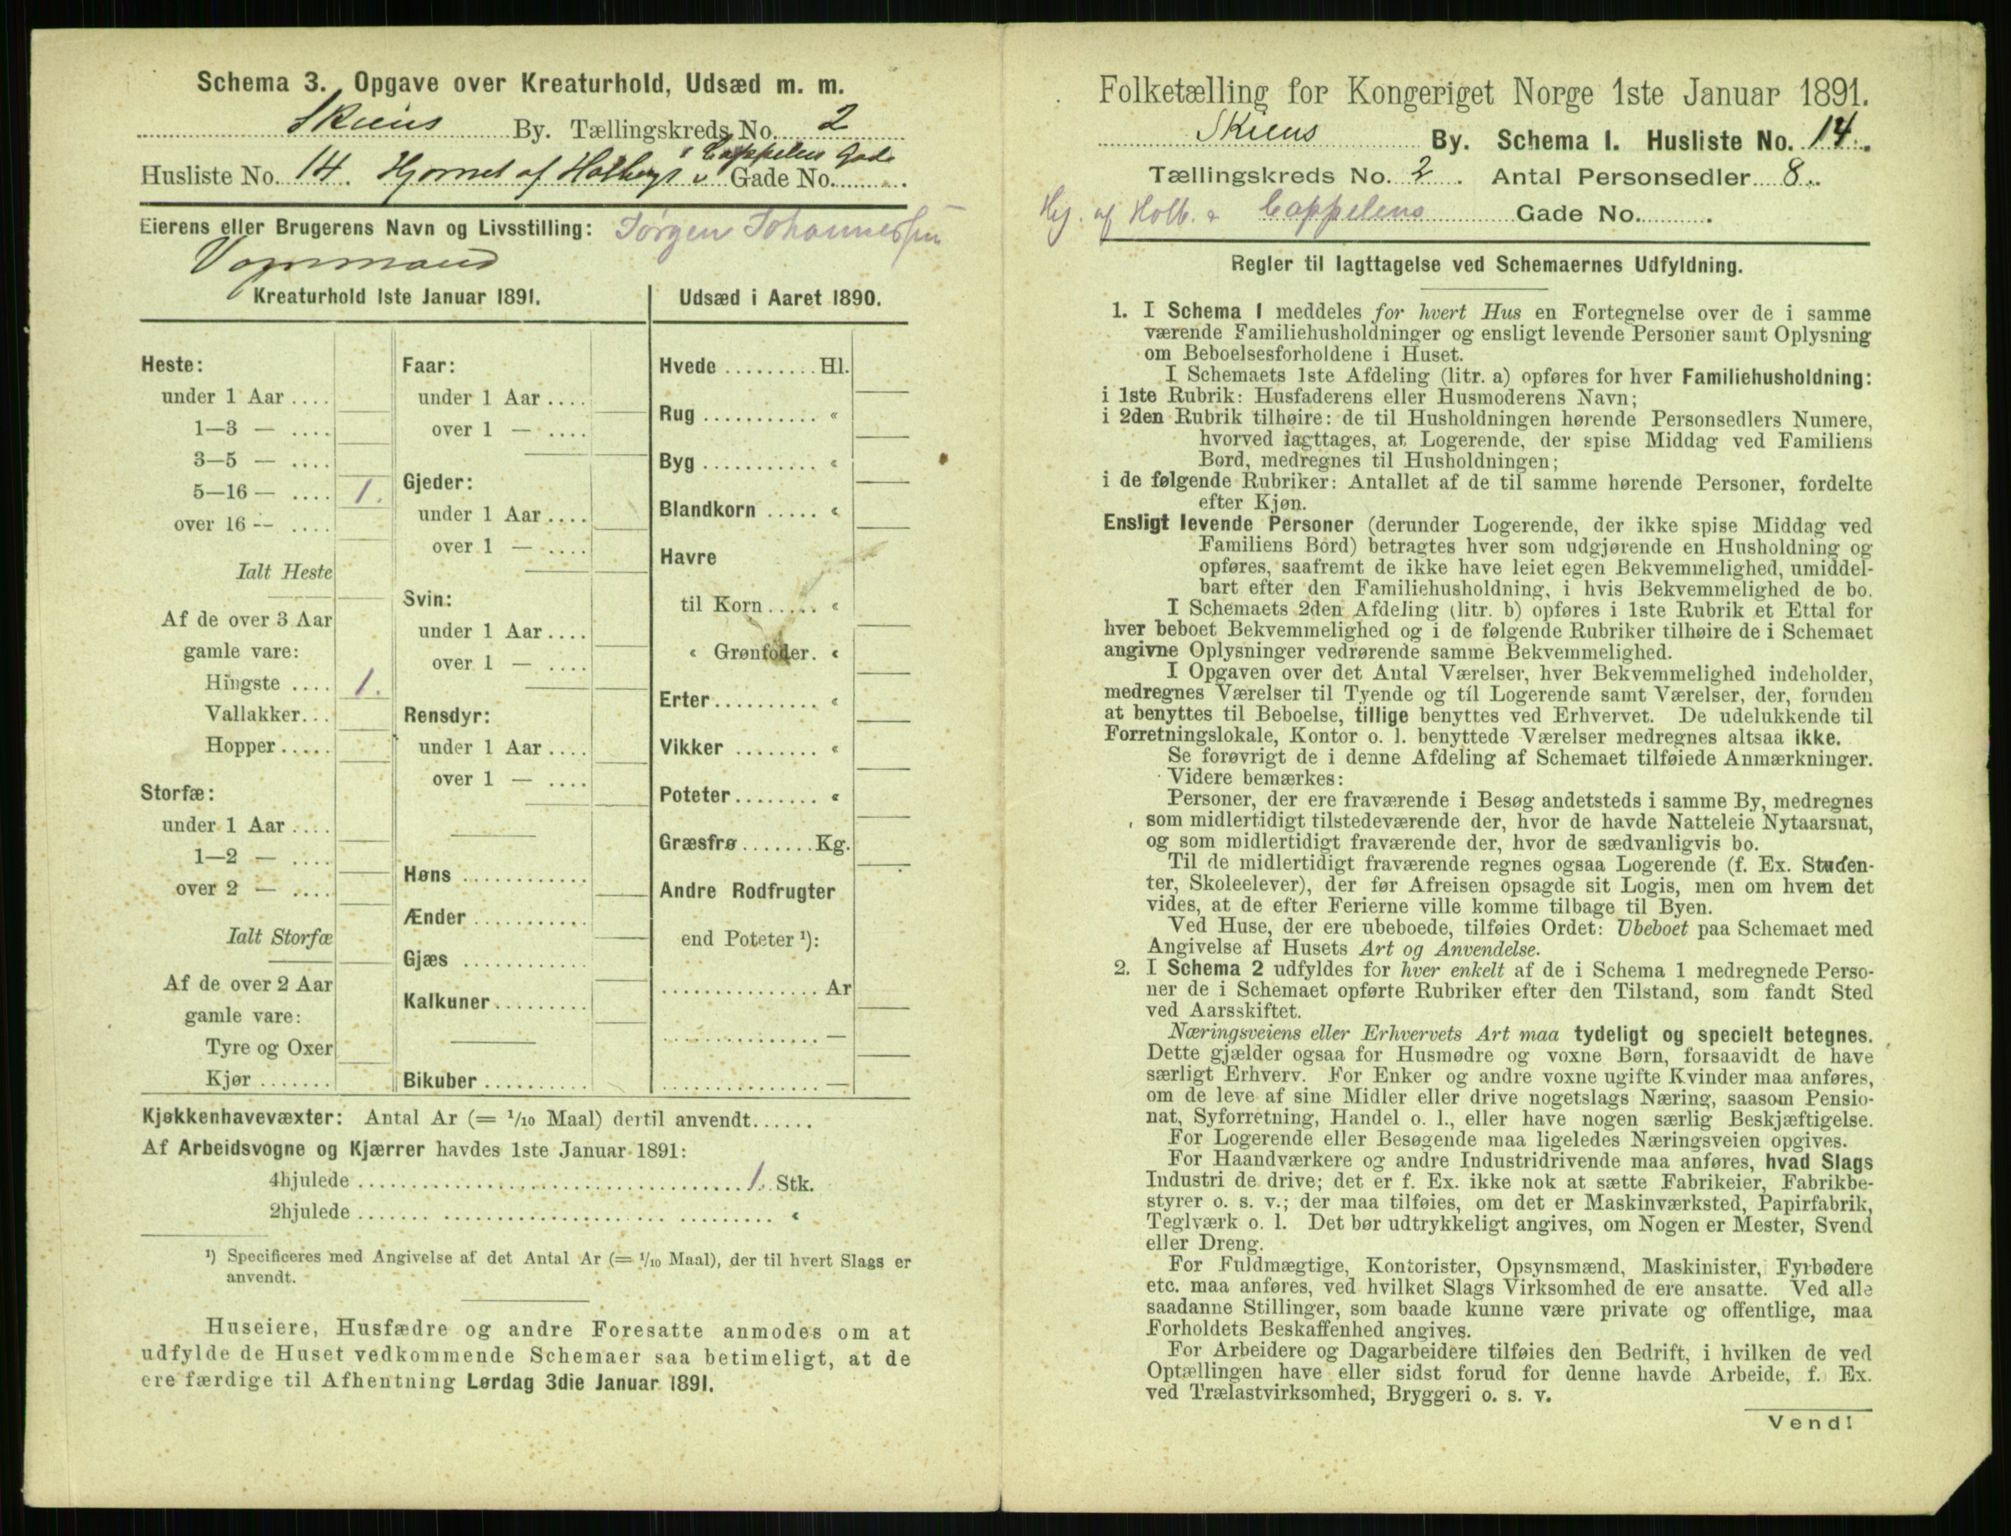 Schema 3. Opgave over Kreaturhold, Udsæd m. m.
Skiens By. Tællingskreds No. 2
Husliste No. 14. Hjørnet af Holbergs & Cappelens Gade Gade No. .
Eierens eller Brugerens Navn og Livsstilling: Jørgen Johannessen
Vognmand
Kreaturhold 1ste Januar 1891.
Heste:
under 1 Aar ....
1—3 — ....
3—5 — ....
5—16 — .... 1.
over 16 — ....
Ialt Heste
Af de over 3 Aar
gamle vare:
Hingste .... 1.
Vallakker...
Hopper .....
Storfæ:
under 1 Aar ....
1—2 — ....
over 2 — ....
Ialt Storfæ
Af de over 2 Aar
gamle vare:
Tyre og Oxer
Kjør .......
Faar:
under 1 Aar ....
over 1 — ....
Gjeder:
under 1 Aar ....
over 1 — ....
Svin:
under 1 Aar ....
over 1 — ....
Rensdyr:
under 1 Aar ....
over 1 — ....
Høns ............
Ænder ...........
Gjæs ............
Kalkuner .........
Bikuber ..........
Udsæd i Aaret 1890.
Hvede ......... Hl.
Rug ........... «
Byg ........... «
Blandkorn ..... «
Havre
til Korn ..... «
« Grønfoder. «
Erter .......... «
Vikker ........ «
Poteter ........ «
Græsfrø ....... Kg.
Andre Rodfrugter
end Poteter ¹):
............... Ar
............... —
............... —
Kjøkkenhavevæxter: Antal Ar (= 1/10 Maal) dertil anvendt......
Af Arbeidsvogne og Kjærrer havdes 1ste Januar 1891:
4hjulede .................................... 1. Stk.
2hjulede .................................... «
¹) Specificeres med Angivelse af det Antal Ar (= 1/10 Maal), der til hvert Slags er
anvendt.
Huseiere, Husfædre og andre Foresatte anmodes om at
udfylde de Huset vedkommende Schemaer saa betimeligt, at de
ere færdige til Afhentning Lørdag 3die Januar 1891.
Folketælling for Kongeriget Norge 1ste Januar 1891.
Skiens By. Schema 1. Husliste No. 14.
Tællingskreds No. 2. Antal Personsedler 8.
Hj. af Holb. & Cappelens Gade No. .
Regler til Iagttagelse ved Schemaernes Udfyldning.
1. I Schema 1 meddeles for hvert Hus en Fortegnelse over de i samme
værende Familiehusholdninger og ensligt levende Personer samt Oplysning
om Beboelsesforholdene i Huset.
I Schemaets 1ste Afdeling (litr. a) opføres for hver Familiehusholdning:
i 1ste Rubrik: Husfaderens eller Husmoderens Navn;
i 2den Rubrik tilhøire: de til Husholdningen hørende Personsedlers Numere,
hvorved iagttages, at Logerende, der spise Middag ved Familiens
Bord, medregnes til Husholdningen;
i de følgende Rubriker: Antallet af de til samme hørende Personer, fordelte
efter Kjøn.
Ensligt levende Personer (derunder Logerende, der ikke spise Middag ved
Familiens Bord) betragtes hver som udgjørende en Husholdning og
opføres, saafremt de ikke have leiet egen Bekvemmelighed, umiddel-
bart efter den Familiehusholdning, i hvis Bekvemmelighed de bo.
I Schemaets 2den Afdeling (litr. b) opføres i 1ste Rubrik et Ettal for
hver beboet Bekvemmelighed og i de følgende Rubriker tilhøire de i Schemaet
angivne Oplysninger vedrørende samme Bekvemmelighed.
I Opgaven over det Antal Værelser, hver Bekvemmelighed indeholder,
medregnes Værelser til Tyende og til Logerende samt Værelser, der, foruden
at benyttes til Beboelse, tillige benyttes ved Erhvervet. De udelukkende til
Forretningslokale, Kontor o. l. benyttede Værelser medregnes altsaa ikke.
Se forøvrigt de i denne Afdeling af Schemaet tilføiede Anmærkninger.
Videre bemærkes:
Personer, der ere fraværende i Besøg andetsteds i samme By, medregnes
som midlertidigt tilstedeværende der, hvor de havde Natteleie Nytaarsnat,
og som midlertidigt fraværende der, hvor de sædvanligvis bo.
Til de midlertidigt fraværende regnes ogsaa Logerende (f. Ex. Studen-
ter, Skoleelever), der før Afreisen opsagde sit Logis, men om hvem det
vides, at de efter Ferierne ville komme tilbage til Byen.
Ved Huse, der ere ubeboede, tilføies Ordet: Ubeboet paa Schemaet med
Angivelse af Husets Art og Anvendelse.
2. I Schema 2 udfyldes for hver enkelt af de i Schema 1 medregnede Perso-
ner de i Schemaet opførte Rubriker efter den Tilstand, som fandt Sted
ved Aarsskiftet.
Næringsveiens eller Erhvervets Art maa tydeligt og specielt betegnes.
Dette gjælder ogsaa for Husmødre og voxne Børn, forsaavidt de have
særligt Erhverv. For Enker og andre voxne ugifte Kvinder maa anføres,
om de leve af sine Midler eller drive nogetslags Næring, saasom Pensio-
nat, Syforretning, Handel o. l., eller have nogen særlig Beskjæftigelse.
For Logerende eller Besøgende maa ligeledes Næringsveien opgives.
For Haandværkere og andre Industridrivende maa anføres, hvad Slags
Industri de drive; det er f. Ex. ikke nok at sætte Fabrikeier, Fabrikbe-
styrer o. s. v.; der maa tilføies, om det er Maskinværksted, Papirfabrik,
Teglværk o. l. Det bør udtrykkeligt angives, om Nogen er Mester, Svend
eller Dreng.
For Fuldmægtige, Kontorister, Opsynsmænd, Maskinister, Fyrbødere
etc. maa anføres, ved hvilket Slags Virksomhed de ere ansatte. Ved alle
saadanne Stillinger, som baade kunne være private og offentlige, maa
Forholdets Beskaffenhed angives.
For Arbeidere og Dagarbeidere tilføies den Bedrift, i hvilken de ved
Optællingen have eller sidst forud for denne havde Arbeide, f. Ex.
ved Trælastvirksomhed, Bryggeri o. s. v.
Vend!